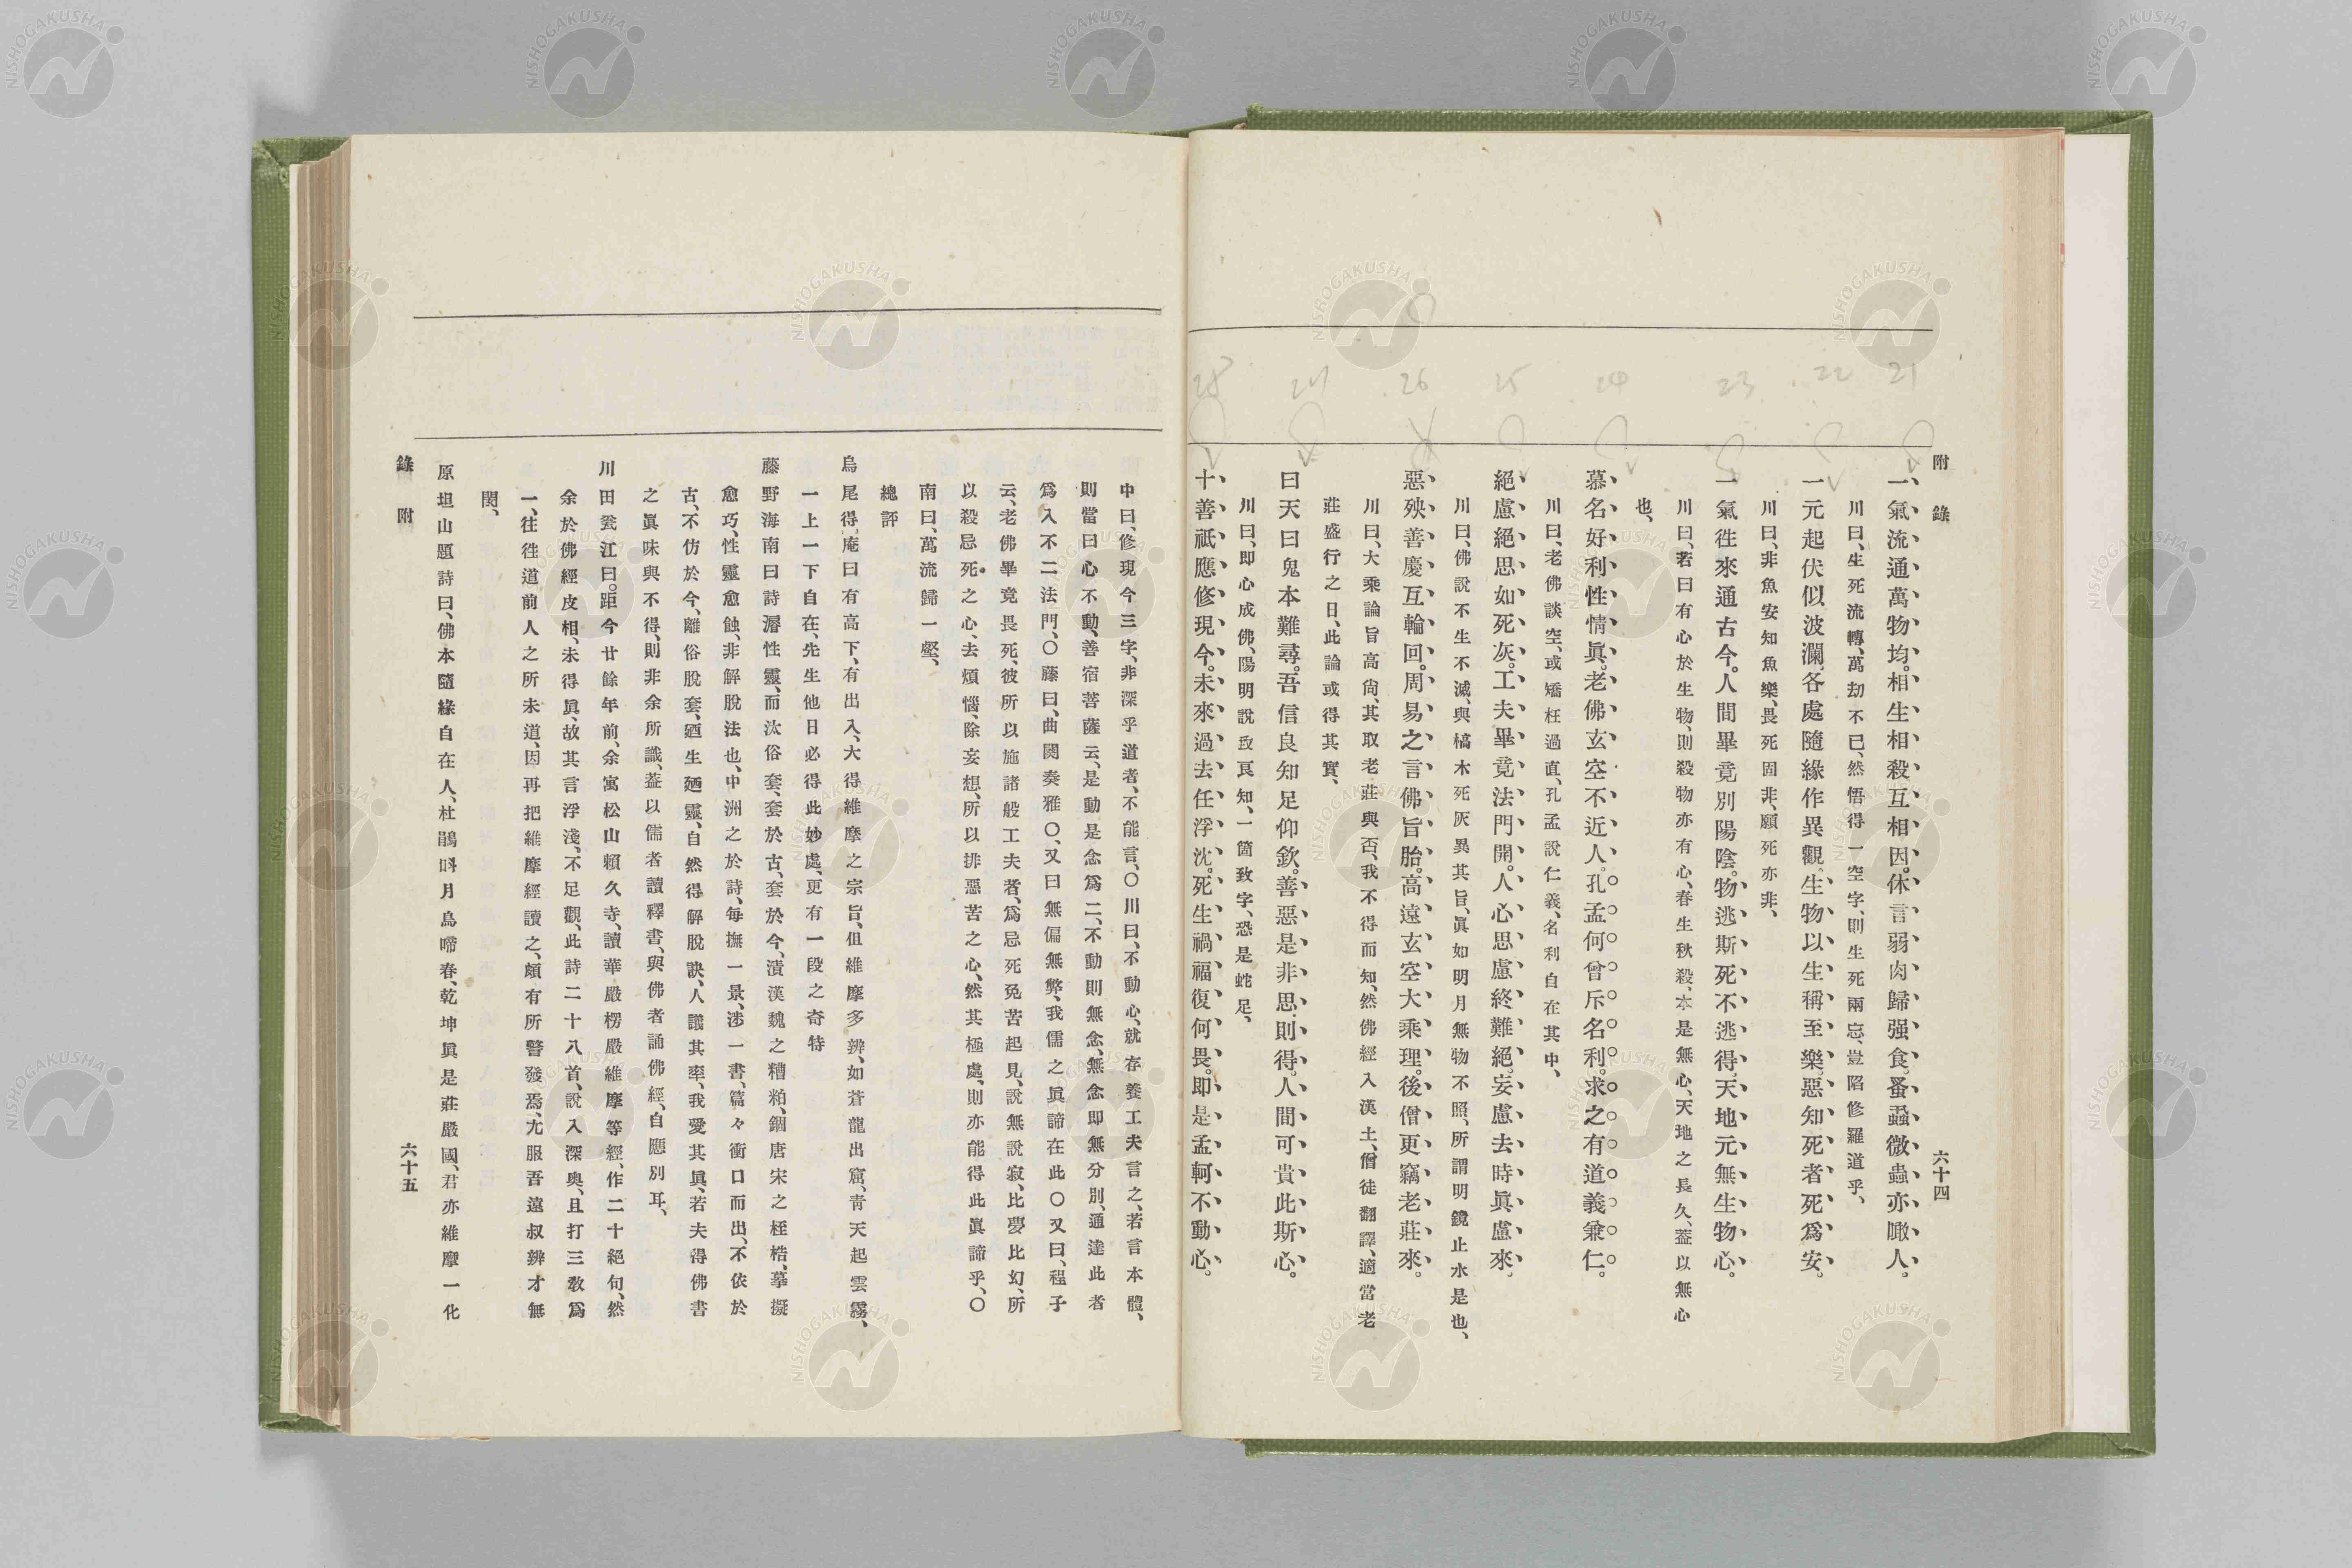 附錄
六十四
21 22 23 24 25 26 27 28
一氣流通萬物均。相生相殺互相因。休言弱肉歸强食。蚤蝨微蟲亦噉人。
川曰、生死流轉、萬劫不已、然悟得一空字、則生死兩忘、豈陷修羅道乎、
一元起伏似波瀾、各處隨緣作異觀。生物以生稱至樂、惡知死者死爲安。
川曰、非魚安知魚樂、畏死固非、願死亦非、
一氣徃來通古今。人間畢竟別陽陰。物逃斯死不逃得、天地元無生物心。
川曰、若曰有心於生物、則殺物亦有心、春生秋殺、本是無心、天地之長久、蓋以無心
也、
慕名好利性情眞。老佛玄空不近人。孔孟何曾斥名利。求之有道義兼仁。
川曰、老佛談空、或矯枉過直、孔孟說仁義、名利自在其中、
絕慮絕思如死灰。工夫畢竟法門開。人心思慮終難絕。妄慮去時眞慮來。
川曰、佛說不生不滅、與槁木死灰異其旨、眞如明月無物不照、所謂明鏡止水是也、
惡殃善慶互輪回。周易之言佛旨胎。高遠玄空大乘理。後僧更竊老莊來。
川曰、大乘論旨高尙、其取老莊與否、我不得而知、然佛經入漢土、僧徒翻譯、適當老
莊盛行之日、此論或得其實、
曰天曰鬼本難尋。吾信良知足仰欽。善惡是非思則得。人間可貴此斯心。
川曰、即心成佛、陽明說致良知、一箇致字、恐是蛇足、
十善祇應修現今。未來過去任浮沈。死生禍福復何畏。即是孟軻不動心。
中曰、修現今三字、非深乎道者、不能言、〇川曰、不動心、就存養工夫言之、若言本體、
則當曰心不動、善宿菩薩云、是動是念爲二、不動則無念、無念即無分別、通達此者
爲入不二法門、〇藤曰、曲闋奏雅〇、又曰無偏無弊、我儒之眞諦在此〇又曰、程子
云、老佛畢竟畏死、彼所以施諸般工夫者、爲忌死免苦起見、說無說寂、比夢比幻、所
以殺忌死之心、去煩惱、除妄想、所以排惡苦之心、然其極處、則亦能得此眞諦乎、〇
南曰、萬流歸一壑、
總評
鳥尾得庵曰有高下、有出入、大得維摩之宗旨、但維摩多辨、如蒼龍出窟、靑天起雲霧、
一上一下自在、先生他日必得此妙處、更有一段之奇特
藤野海南曰詩濬性靈、而汰俗套、套於古、套於今、漬漢魏之糟粕、錮唐宋之桎梏、摹擬
愈巧、性靈愈蝕、非解脫法也、中洲之於詩、每撫一景、涉一書、篇々衝口而出、不依於
古、不仿於今、離俗脫套、廼生廼靈、自然得解脫訣、人譏其率、我愛其眞、若夫得佛書
之眞味與不得、則非余所識、蓋以儒者讀釋書、與佛者誦佛經、自應別耳、
川田甕江曰。距今廿餘年前、余寓松山賴久寺、讀華嚴楞嚴維摩等經、作二十絕句、然
余於佛經皮相、未得眞、故其言浮淺、不足觀、此詩二十八首、說入深奧、且打三敎爲
一、徃徃道前人之所未道、因再把維摩經讀之、頗有所警發焉、尤服吾遠叔辨才無
閡、
原坦山題詩曰、佛本隨緣自在人、杜鵑呌月鳥啼春、乾坤眞是莊嚴國、君亦維摩一化
錄附
六十五